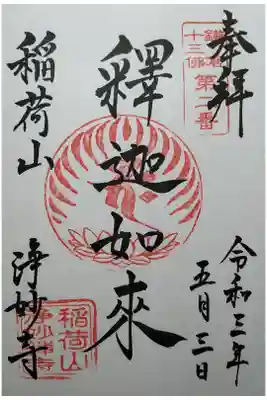 奉拝
鎌倉
十三佛
第二番
釋迦如來
令和三年
五月三日
稲荷山
浄妙寺
稲荷山
浄妙禅寺